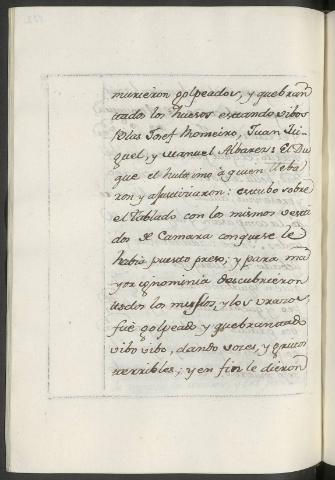 murieron golpeados, y quebran
tado los huesos estando vibos
Blas Josef Romeiro, Juan Mi-
guel, y Manuel Albares: El Du
que el hultimo à quien lleba
ron y ajusticiaron: estubo sobre
el tablado con los mismos vesti
dos de Camara conquese le
habia puesto preso; y para ma
yor ignominia descubrieron
todos los muslos, y los vrazos,
fué golpeado y quebrantado
vibo vibo, dando voces, y gritos
terribles; y en fin le dieron